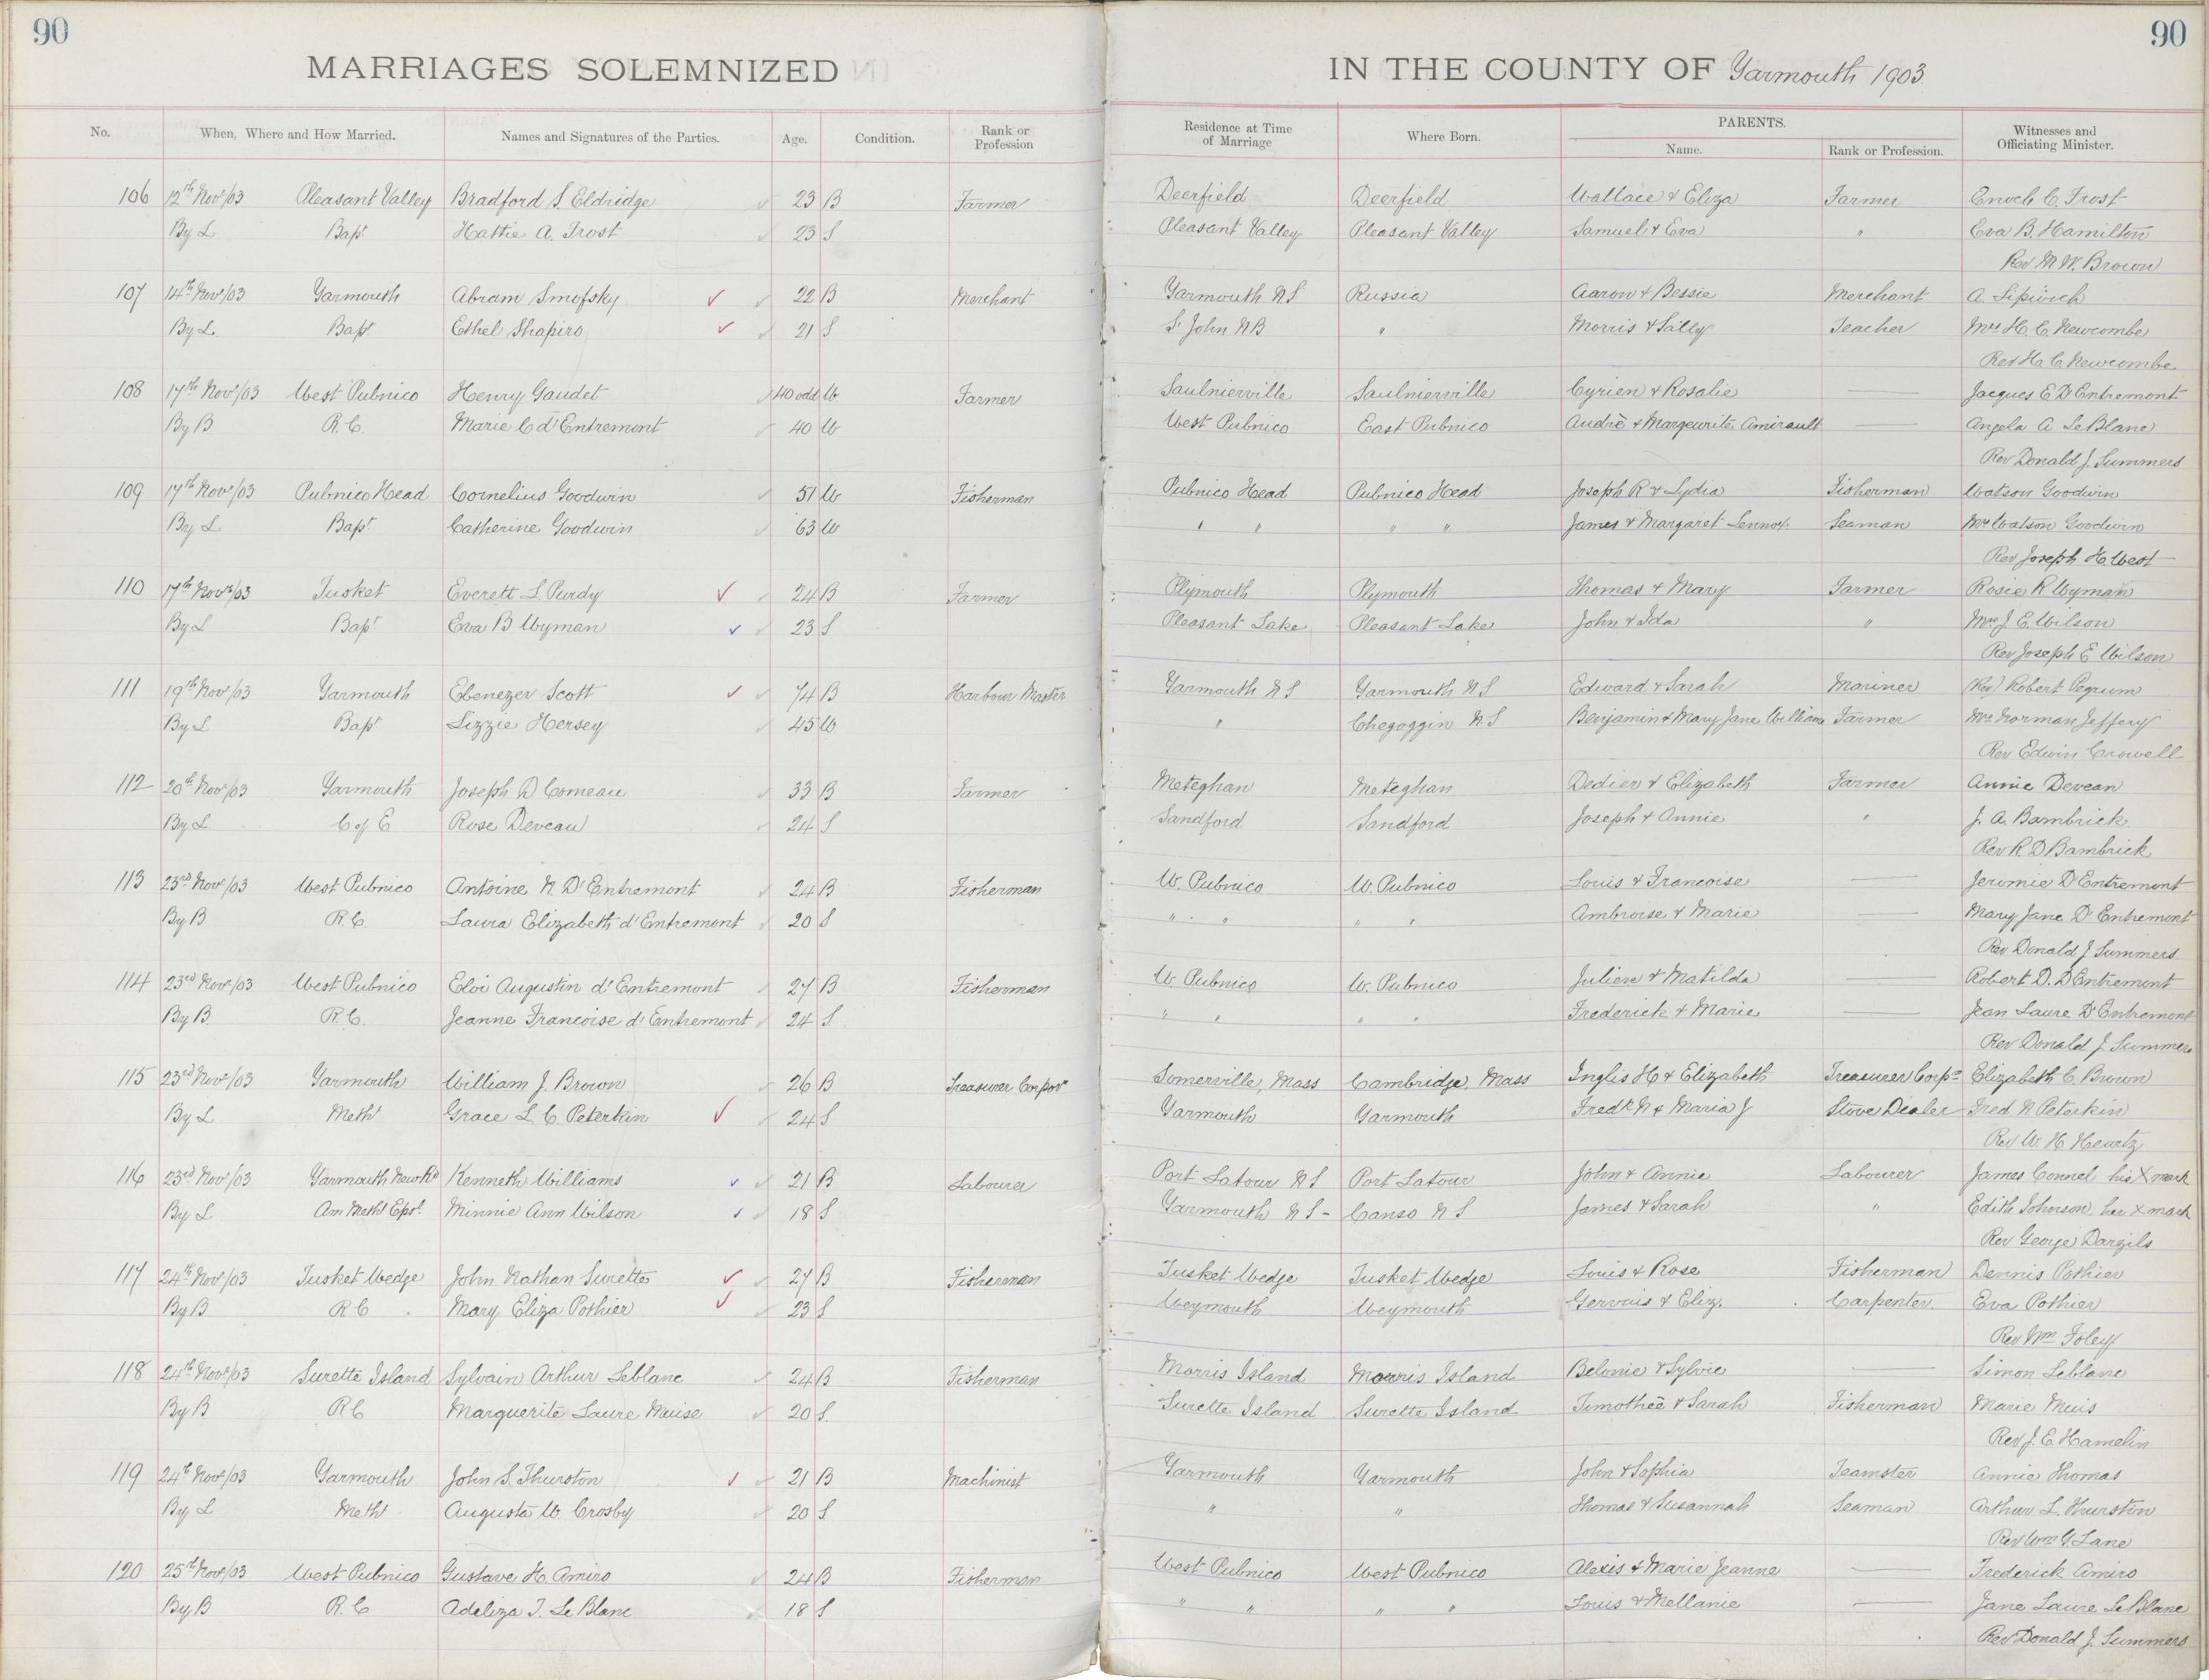 90 90
MARRIAGES SOLEMNIZED IN THE COUNTY OF Yarmouth 1903
No. When, Where and How Married. Names and Signatures of the Parties. Age. Condition. Rank or Profession Residence at Time of Marriage Where Born. PARENTS. Name. Rank or Profession. Witnesses and Officiating Minister.
106 12th Nov/03 Pleasant Valley Bradford S Eldridge 23 B Farmer Deerfield Deerfield Wallace & Eliza Farmer Enoch C. Frost
By L Bapt Hattie A. Frost 23 S Pleasant Valley Pleasant Valley Samuel & Eva " Eva B. Hamilton
Rev M W. Brown
107 14th Nov/03 Yarmouth Abram Smofsky 22 B Merchant Yarmouth N S Russia Aaron & Bessie Merchant A.
By L. Bapt Ethel Shapiro 21 S St John N B " Morris & Sally Teacher Mrs H. C. Newcombe
Rev H. C. Newcombe
108 17th Nov/03 West Pubnico Henry Gaudet 40 odd W Farmer Saulnierville Saulnierville Cyrien & Rosalie Jacques E D'Entremont
By B R. C. Marie C d'Entremont 40 W West Pubnico East Pubnico André & Margeurite Amirault Angela A LeBlanc
Rev Donald J. Summers
109 17th Nov/03 Pubnico Head Cornelius Goodwin 51 W Fisherman Pubnico Head Pubnico Head Joseph R & Lydia Fisherman Watson Goodwin
By L Bapt Catherine Goodwin 63 W " " " " James & Margaret Lennox Seaman Mrs Watson Goodwin
Rev Joseph H. West
110 17th Nov/03 Tusket Everett L. Purdy 24 B Farmer Plymouth Plymouth Thomas & Mary Farmer Rosie R Wyman
By L Bapt Eva B Wyman 23 S Pleasant Lake Pleasant Lake John & Ida " Mrs J E. Wilson
Rev Joseph E Wilson
111 19th Nov/03 Yarmouth Ebenezer Scott 74 B Harbour Master Yarmouth N S Yarmouth N S Edward & Sarah Mariner (Rev) Robert Pegrum
By L Bapt Lizzie Hersey 45 W " Chegoggin N S Benjamin & Mary Jane Williams Farmer Mrs Norman Jeffery
Rev Edwin Crowell
112 20th Nov/03 Yarmouth Joseph D Comeau 33 B Farmer Meteghan Meteghan Dedier & Elizabeth Farmer Annie Devean
By L C of E Rose Deveau 24 S Sandford Sandford Joseph & Annie " J. A. Bambrick
Rev R. D Bambrick
113 23rd Nov/03 West Pubnico Antoine N D'Entremont 24 B Fisherman W. Pubnico W. Pubnico Louis & Francoise Jeromie D'Entremont
By B R. C. Laura Elizabeth d'Entremont 20 S " " " " Ambroise & Marie Mary Jane D'Entremont
Rev Donald J Summers
114 23rd Nov/03 West Pubnico Eloi Augustin d'Entremont 27 B Fisherman W Pubnico W. Pubnico Julien & Matilda Robert D. D'Entremont
By B R. C. Jeanne Francoise d'Entremont 24 S " " " " Frederick & Marie Jean Laure D'Entremont
Rev Donald J Summers
115 23rd Nov/03 Yarmouth William J. Brown 26 B Treasurer Corpor Somerville, Mass Cambridge, Mass Inglis H & Elizabeth Treasurer Corpn Elizabeth C. Brown
By L Meth Grace L C. Peterkin 24 S Yarmouth Yarmouth Fredk N & Maria J Stove Dealer Fred N Peterkin
Rev W. H Heartz
116 23rd Nov/03 Yarmouth New Rd Kenneth Williams 21 B Labourer Port Latour N S Port Latour John & Annie Labourer James Connel his X mark
By L Am Meth Epsl. Minnie Ann Wilson 18 S Yarmouth N S - Canso N S James & Sarah " Edith Johnson her X mark
Rev George Dargils
117 24th Nov/03 Tusket Wedge John Nathan Surette 27 B Fisherman Tusket Wedge Tusket Wedge Louis & Rose Fisherman Dennis Pothier
By B R C Mary Eliza Pothier 23 S Weymouth Weymouth Gervais & Eliz. Carpenter. Eva Pothier
Rev Wm Foley
118 24th Nov/03 Surette Island Sylvain Arthur Leblanc 24 B Fisherman Morris Island Morris Island Belonie & Sylvie Simon Leblanc
By B R C Marguerite Laure Meuise 20 S. Surette Island Surette Island Timothée & Sarah Fisherman Marie Muis
Rev J. E. Hamelin
119 24th Nov/03 Yarmouth John S. Thurston 21 B Machinist Yarmouth Yarmouth John & Sophia Teamster Annie Thomas
By L Meth Augusta W. Crosby 20 S " " Thomas & Susannah Seaman Arthur L. Thurston
Rev Wm G. Lane
120 25th Nov/03 West Pubnico Gustave H. Amiro 24 B Fisherman West Pubnico West Pubnico Alexis & Marie Jeanne Frederick Amiro
By B R. C Adeliza T. Le Blanc 18 S " " " " Louis & Mellanie Jane Laure Le Blanc
Rev Donald J. Summers